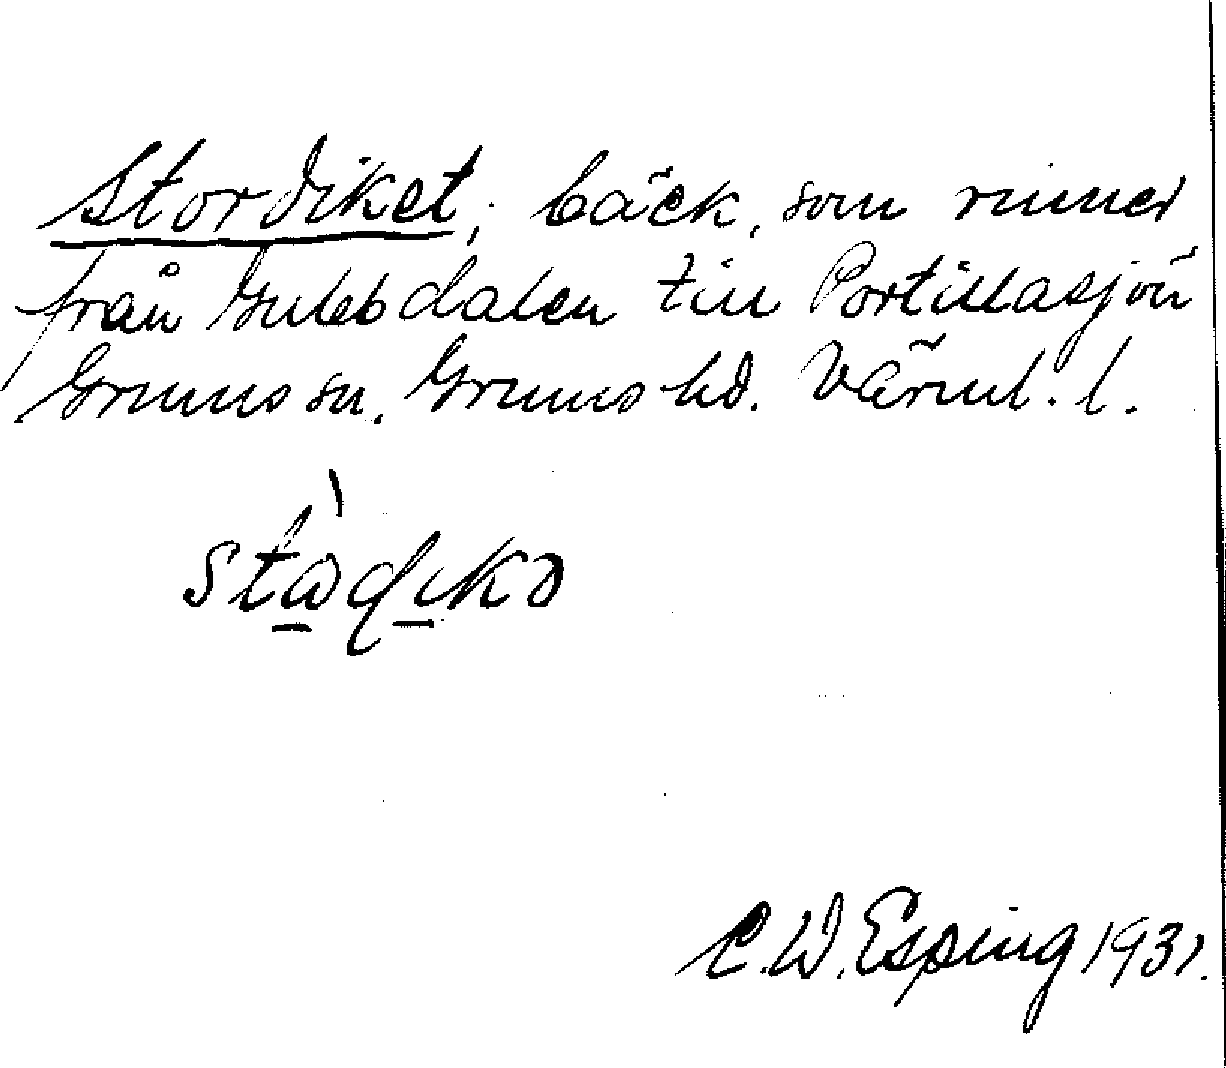 Stordiket, bäck, som rinner
från dalen till Portillasjön
Grums sn. Grums hd. Värml. l.
C. W. Esping 1931.